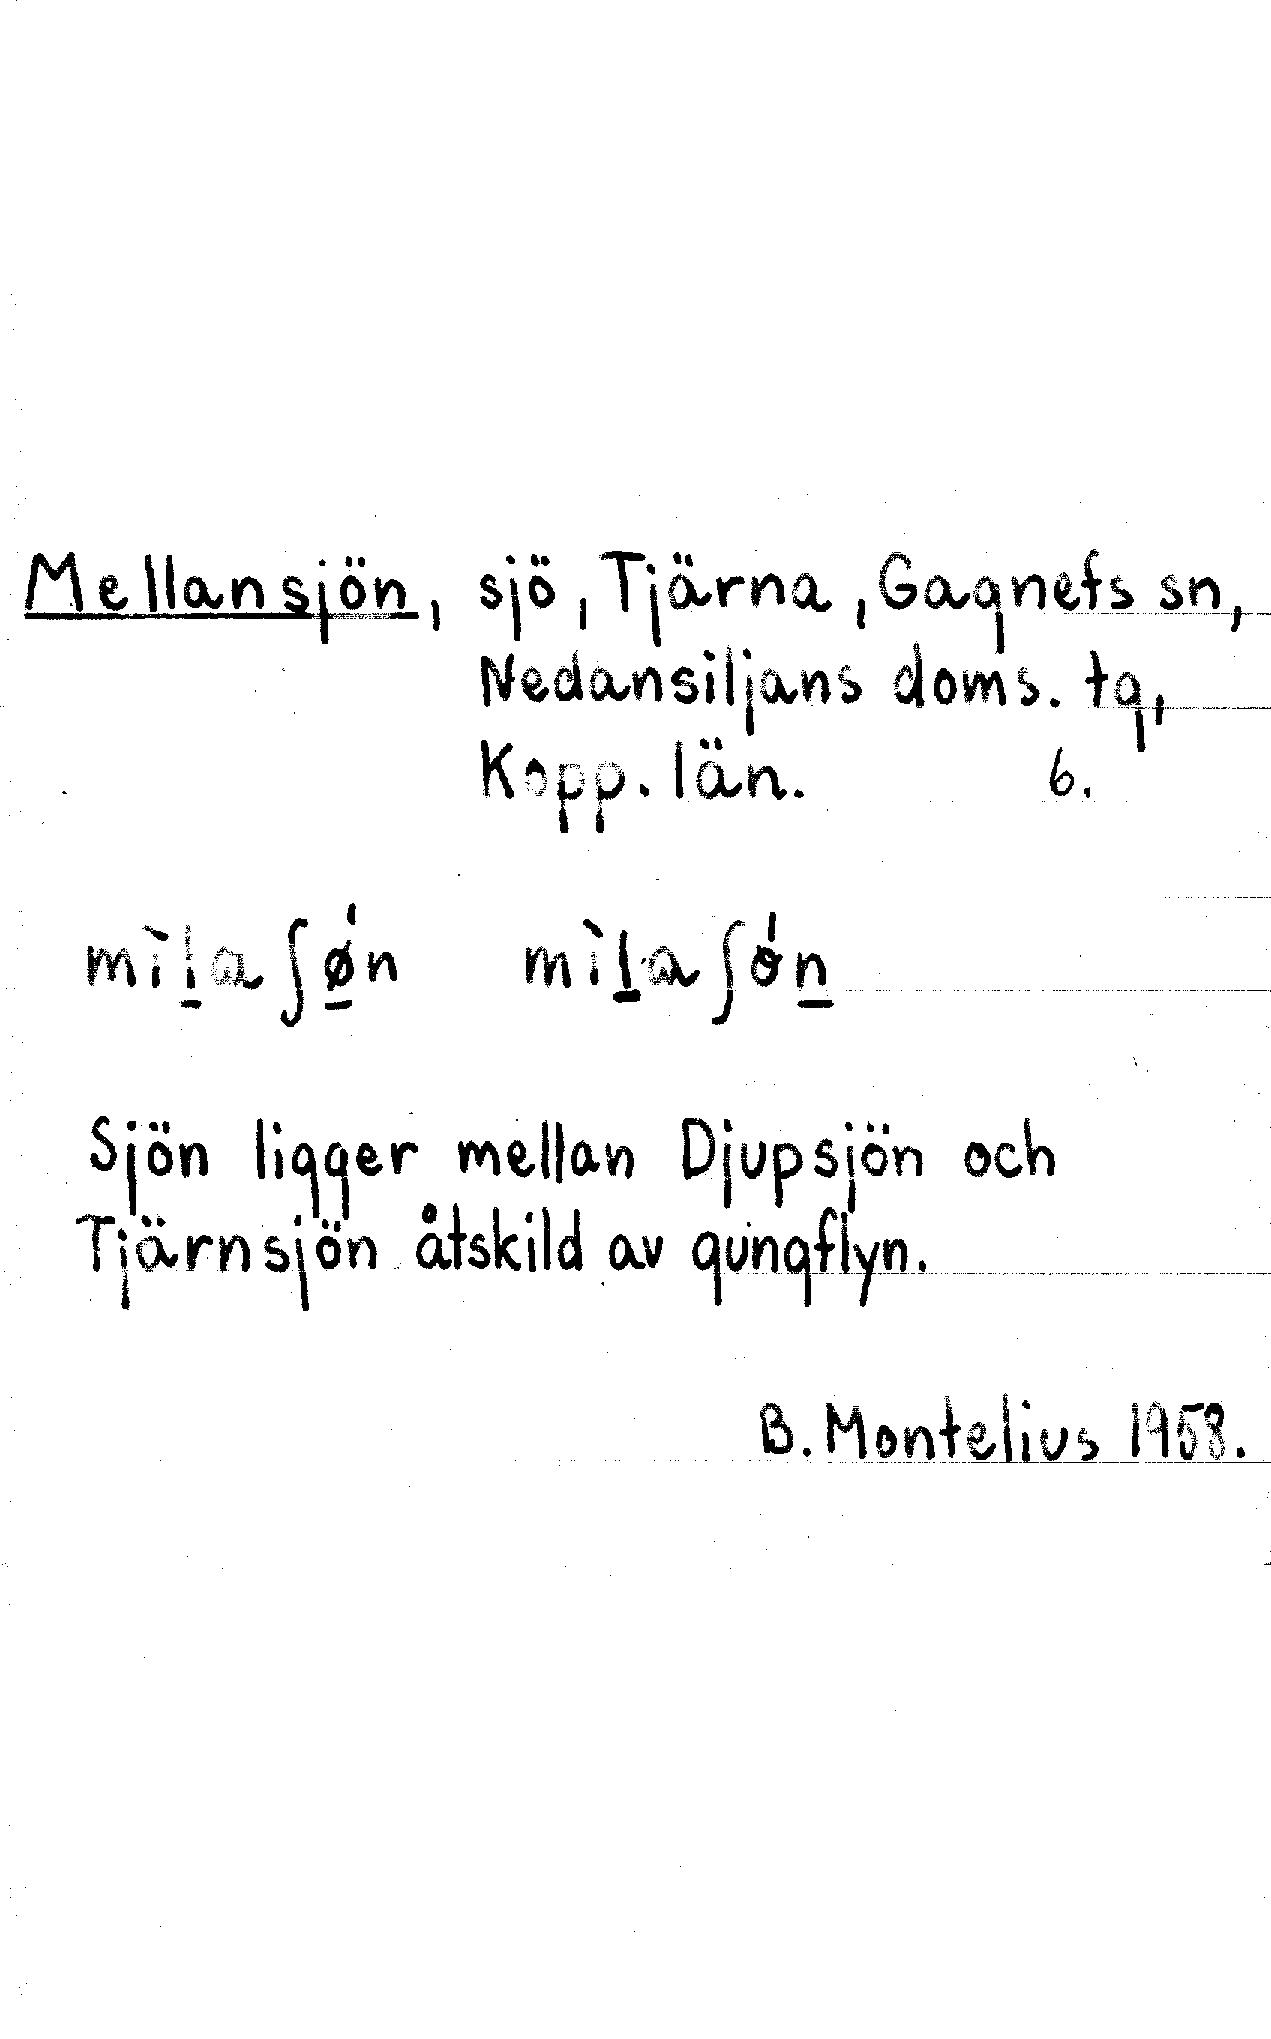 Mellansjön, sjö, Tjärna, Gagnefs sn,
Nedansiljans doms. tg,
Kopp. län. 6.
mìl̠aʃǿ̠n mìl̠aʃόn̠
Sjön ligger mellan Djupsjön och
Tjärnsjön åtskild av gungflyn.
B. Montelius 1958.